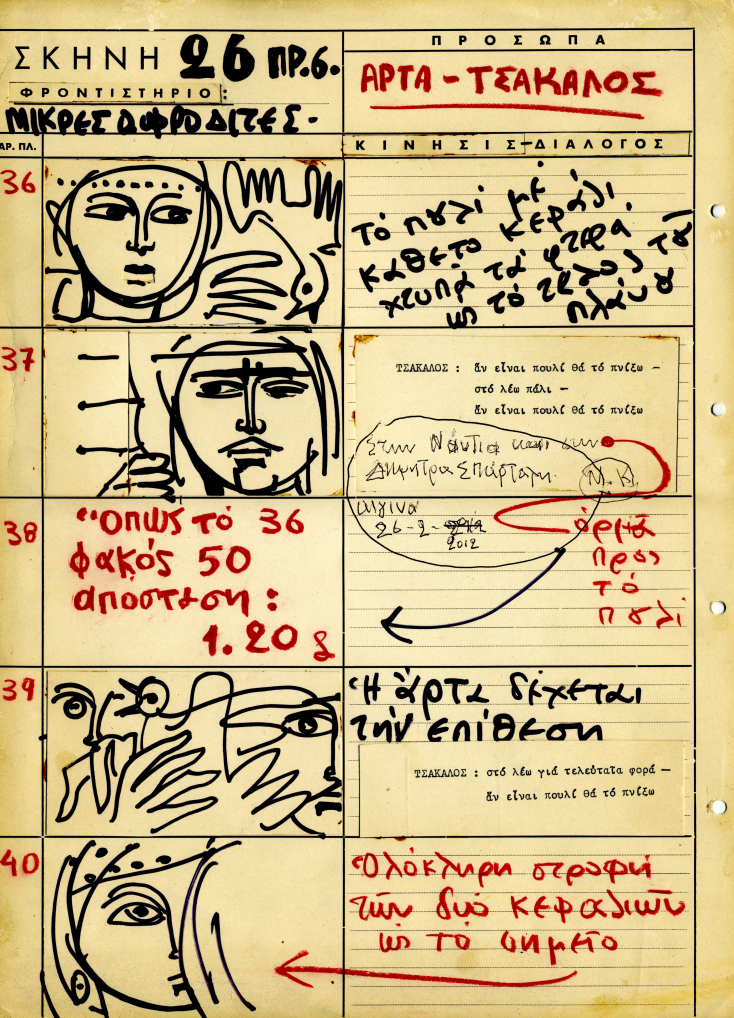 ΣΚΗΝΗ 26 ΠΡ.6.
ΦΡΟΝΤΙΣΤΗΡΙΟ:
ΜΙΚΡΕΣ ΑΦΡΟΔΙΤΕΣ-
ΠΡΟΣΩΠΑ
ΑΡΤΑ-ΤΣΑΚΑΛΟΣ
ΑΡ. ΠΛ.
ΚΙΝΗΣΙΣ-ΔΙΑΛΟΓΟΣ
36
Τό πουλί μέ
κάθετο κεφάλι
χτυπά τά φτερά
ως τό τέλος τοῦ
πλάνου
37
ΤΣΑΚΑΛΟΣ : ἄν εἶναι πουλί θά τό πνίξω —
στό λέω πάλι —
ἄν εἶναι πουλί θά τό πνίξω
Στην Νάντια και στην
Δήμητρα Σπάρταλη.
Μ.Κ.
Αίγινα
26-2-
2012
38
Ὅπως τό 36
φακός 50
απόσταση:
1.20
ἁρπᾶ
πρός
τό
πουλί
39
Ἡ ἄρτα δέχεται
τήν επίθεση
ΤΣΑΚΑΛΟΣ : στό λέω γιά τελευταῖα φορά —
ἄν εἶναι πουλί θά τό πνίξω
40
Ὁλόκληρη στροφή
τῶν δυό κεφαλιῶν
ὡς τό σημεῖο